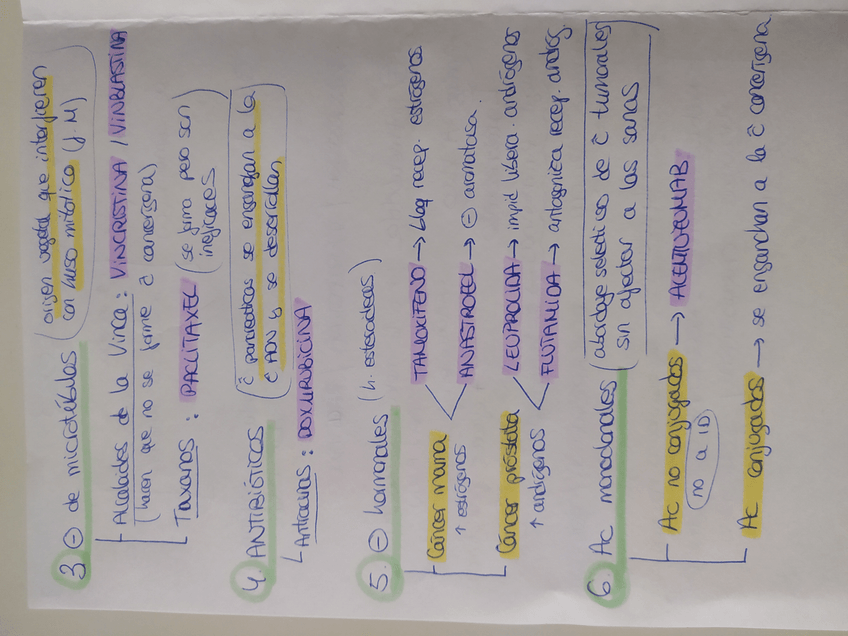 3. ⊖ de microtúbulos (origen vegetal que interfieren
con huso mitótico (f. M)
Alcaloides de la Vinca: VINCRISTINA / VINBLASTINA
(hacen que no se forme c̄ cancerígena)
Taxanos: PACLITAXEL (se forma pero son
ineficaces)
4. ANTIBIÓTICOS (c̄ pancreáticas se enganchan a la
c̄ ADN y se desarrollan)
Antracinas: DOXURUBICINA
5. ⊖ hormonales (h. esteroideas)
Cáncer mama TAMOXIFENO → bloq recep. estrógenos
↑ estrógenos ANASTROZEL → ⊖ aromatasa.
Cáncer próstata LEUPROLINA → impid libera. andrógenos
↑ andrógenos FLUTAMIDA → antagoniza recep. andróg.
6. Ac monoclonales (abordaje selectivo de c̄ tumorales
sin afectar a las sanas
Ac no conjugados → ALEMTUZUMAB
no a ID
Ac conjugados → se enganchan a la c̄ cancerígena